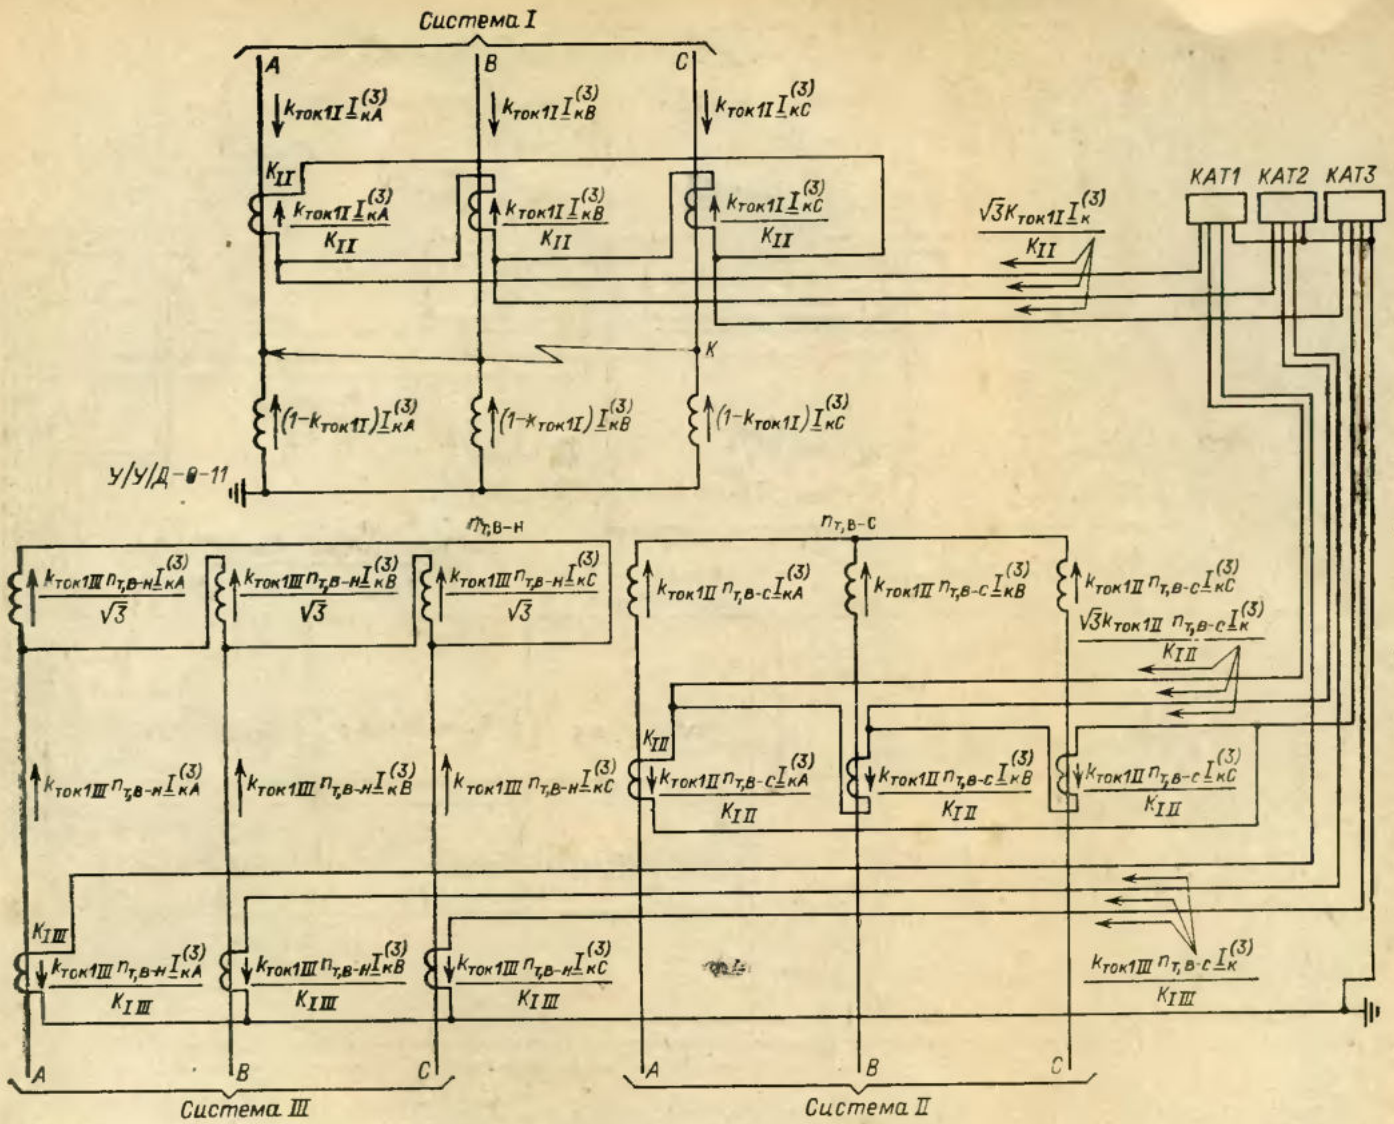 Система I
A B C
k_ток1I I_кA^(3) k_ток1I I_кB^(3) k_ток1I I_кC^(3)
KAT1 KAT2 KAT3
K_II
k_ток1I I_кA^(3) / K_II k_ток1I I_кB^(3) / K_II k_ток1I I_кC^(3) / K_II
√3K_ток1I I_к^(3) / K_II
K
(1-k_ток1I) I_кA^(3) (1-k_ток1I) I_кB^(3) (1-k_ток1I) I_кC^(3)
У/У/Д-0-11
n_т,в-н n_т,в-с
k_ток1III n_т,в-н I_кA^(3) / √3 k_ток1III n_т,в-н I_кB^(3) / √3 k_ток1III n_т,в-н I_кC^(3) / √3
k_ток1II n_т,в-с I_кA^(3) k_ток1II n_т,в-с I_кB^(3) k_ток1II n_т,в-с I_кC^(3)
√3k_ток1II n_т,в-с I_к^(3) / K_III
K_III
k_ток1III n_т,в-н I_кA^(3) k_ток1III n_т,в-н I_кB^(3) k_ток1III n_т,в-н I_кC^(3)
k_ток1II n_т,в-с I_кA^(3) / K_III k_ток1II n_т,в-с I_кB^(3) / K_III k_ток1II n_т,в-с I_кC^(3) / K_III
K_IIII
k_ток1III n_т,в-н I_кA^(3) / K_IIII k_ток1III n_т,в-н I_кB^(3) / K_IIII k_ток1III n_т,в-н I_кC^(3) / K_IIII
k_ток1III n_т,в-с I_к^(3) / K_IIII
A B C A B C
Система III Система II